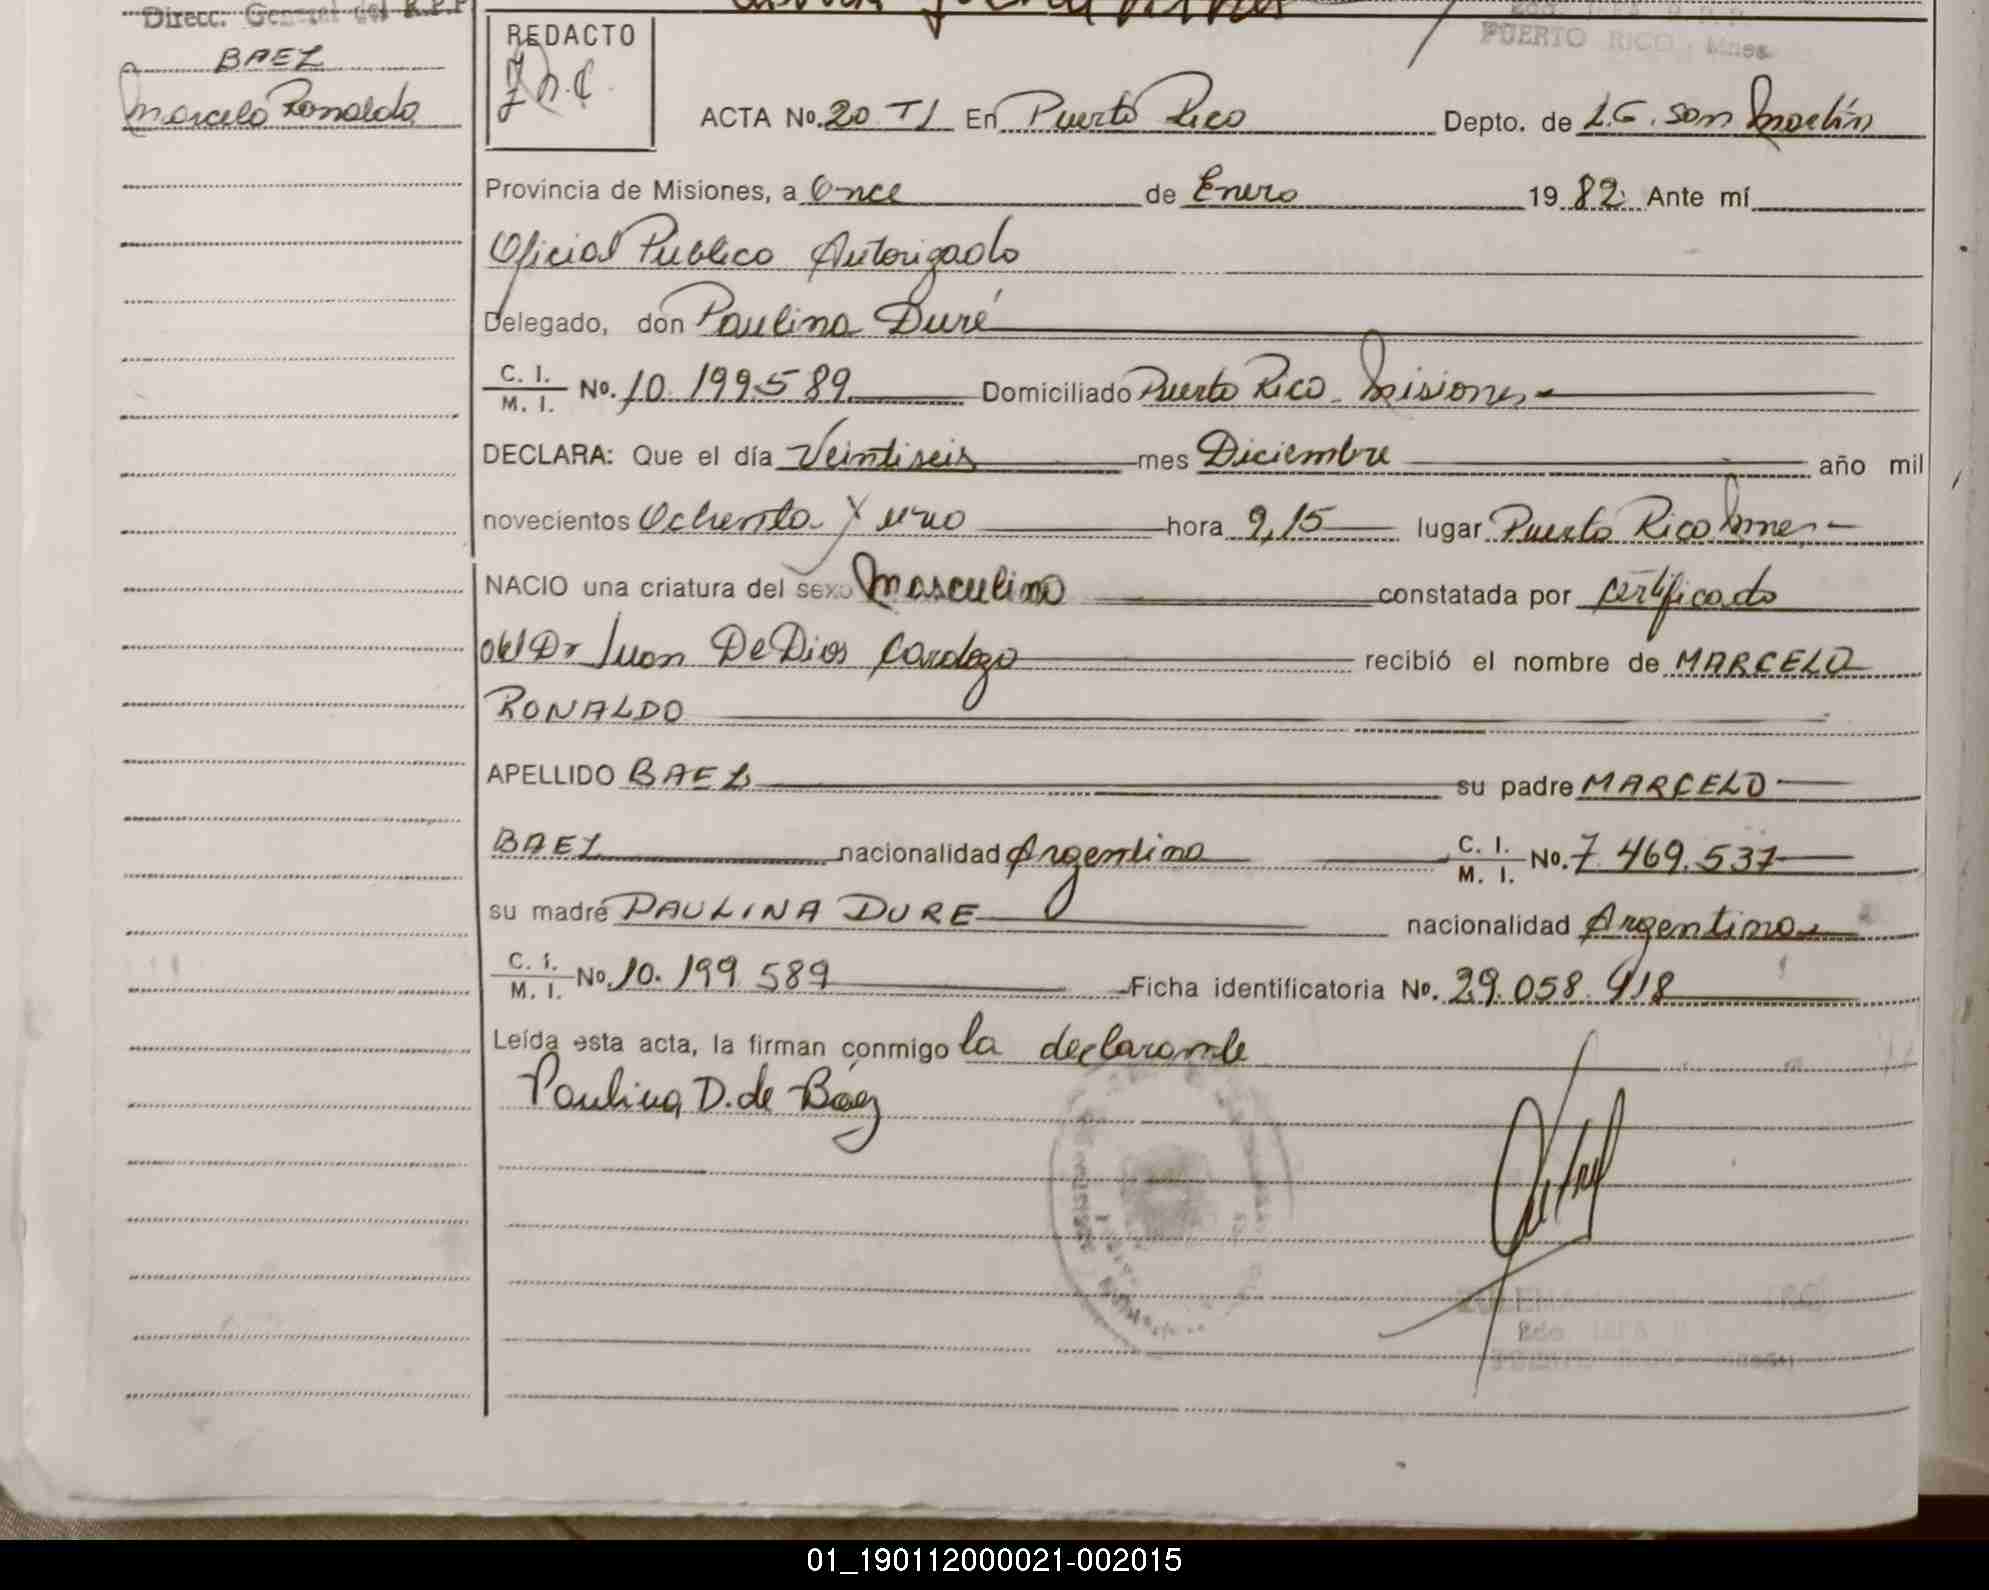 Direcc. General del R.P.P
BAEZ
Marcelo Ronaldo
REDACTO
PUERTO RICO, Mnes
ACTA No. 20 TI En Puerto Rico Depto. de L.G. San Martín
Provincia de Misiones, a Once de Enero 1982. Ante mí
Oficial Publico Autorizado
Delegado, don Paulina Duré
C. I. / M. I. No. 10.199.589 Domiciliado Puerto Rico - Misiones -
DECLARA: Que el día Veintiseis mes Diciembre año mil
novecientos Ochenta y uno hora 9,15 lugar Puerto Rico Mnes -
NACIO una criatura del sexo Masculino constatada por certificado
del Dr Juan De Dios Cardozo recibió el nombre de MARCELO
RONALDO
APELLIDO BAEZ su padre MARCELO
BAEZ nacionalidad Argentina C. I. / M. I. No. 7.469.537
su madre PAULINA DURE nacionalidad Argentina
C. I. / M. I. No. 10.199.589 Ficha identificatoria No. 29.058.918
Leída esta acta, la firman conmigo la declarante
Paulina D. de Báez
01_190112000021-002015